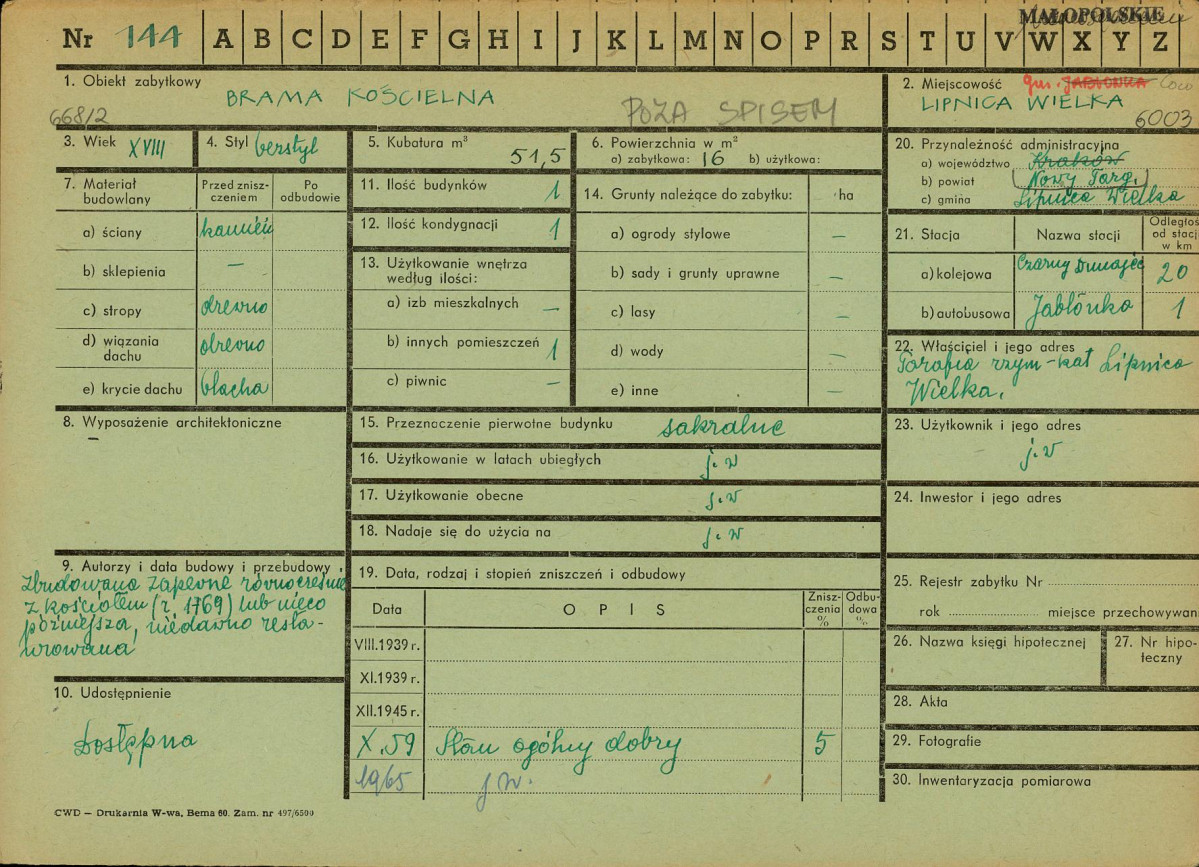 MAŁOPOLSKIE
Nr 144 A B C D E F G H I J K L M N O P R S T U V W X Y Z
1. Obiekt zabytkowy
BRAMA KOŚCIELNA
668/2
POZA SPISEM
2. Miejscowość gm. JABŁONKA
LIPNICA WIELKA
6003
3. Wiek XVIII
4. Styl bezstyl
5. Kubatura m³
51,5
6. Powierzchnia w m²
a) zabytkowa: 16 b) użytkowa:
20. Przynależność administracyjna
a) województwo Kraków
b) powiat Nowy Targ.
c) gmina Lipnica Wielka
7. Materiał budowlany
Przed zniszczeniem
Po odbudowie
a) ściany kamień
b) sklepienia —
c) stropy drewno
d) wiązania dachu drewno
e) krycie dachu blacha
11. Ilość budynków 1
12. Ilość kondygnacji 1
13. Użytkowanie wnętrza
według ilości:
a) izb mieszkalnych —
b) innych pomieszczeń 1
c) piwnic —
14. Grunty należące do zabytku: ha
a) ogrody stylowe —
b) sady i grunty uprawne —
c) lasy —
d) wody —
e) inne —
21. Stacja Nazwa stacji Odległoś od stacj w km
a) kolejowa Czarny Dunajec 20
b) autobusowa Jabłonka 1
22. Właściciel i jego adres
Parafia rzym-kat Lipnica
Wielka.
8. Wyposażenie architektoniczne
—
15. Przeznaczenie pierwotne budynku sakralne
16. Użytkowanie w latach ubiegłych j.w
17. Użytkowanie obecne j.w
18. Nadaje się do użycia na j.w
23. Użytkownik i jego adres
j.w
24. Inwestor i jego adres
9. Autorzy i data budowy i przebudowy
Zbudowana zapewne równocześnie
z kościołem (r. 1769) lub nieco
późniejsza, niedawno resta-
urowana
10. Udostępnienie
Dostępna
19. Data, rodzaj i stopień zniszczeń i odbudowy
Data OPIS Zniszczenia % Odbudowa %
VIII.1939 r.
XI.1939 r.
XII.1945 r.
X.59 Stan ogólny dobry 5
1965 j w.
25. Rejestr zabytku Nr
rok miejsce przechowywan
26. Nazwa księgi hipotecznej
27. Nr hipo-
teczny
28. Akta
29. Fotografie
30. Inwentaryzacja pomiarowa
CWD — Drukarnia W-wa, Bema 60. Zam. nr 497/6500